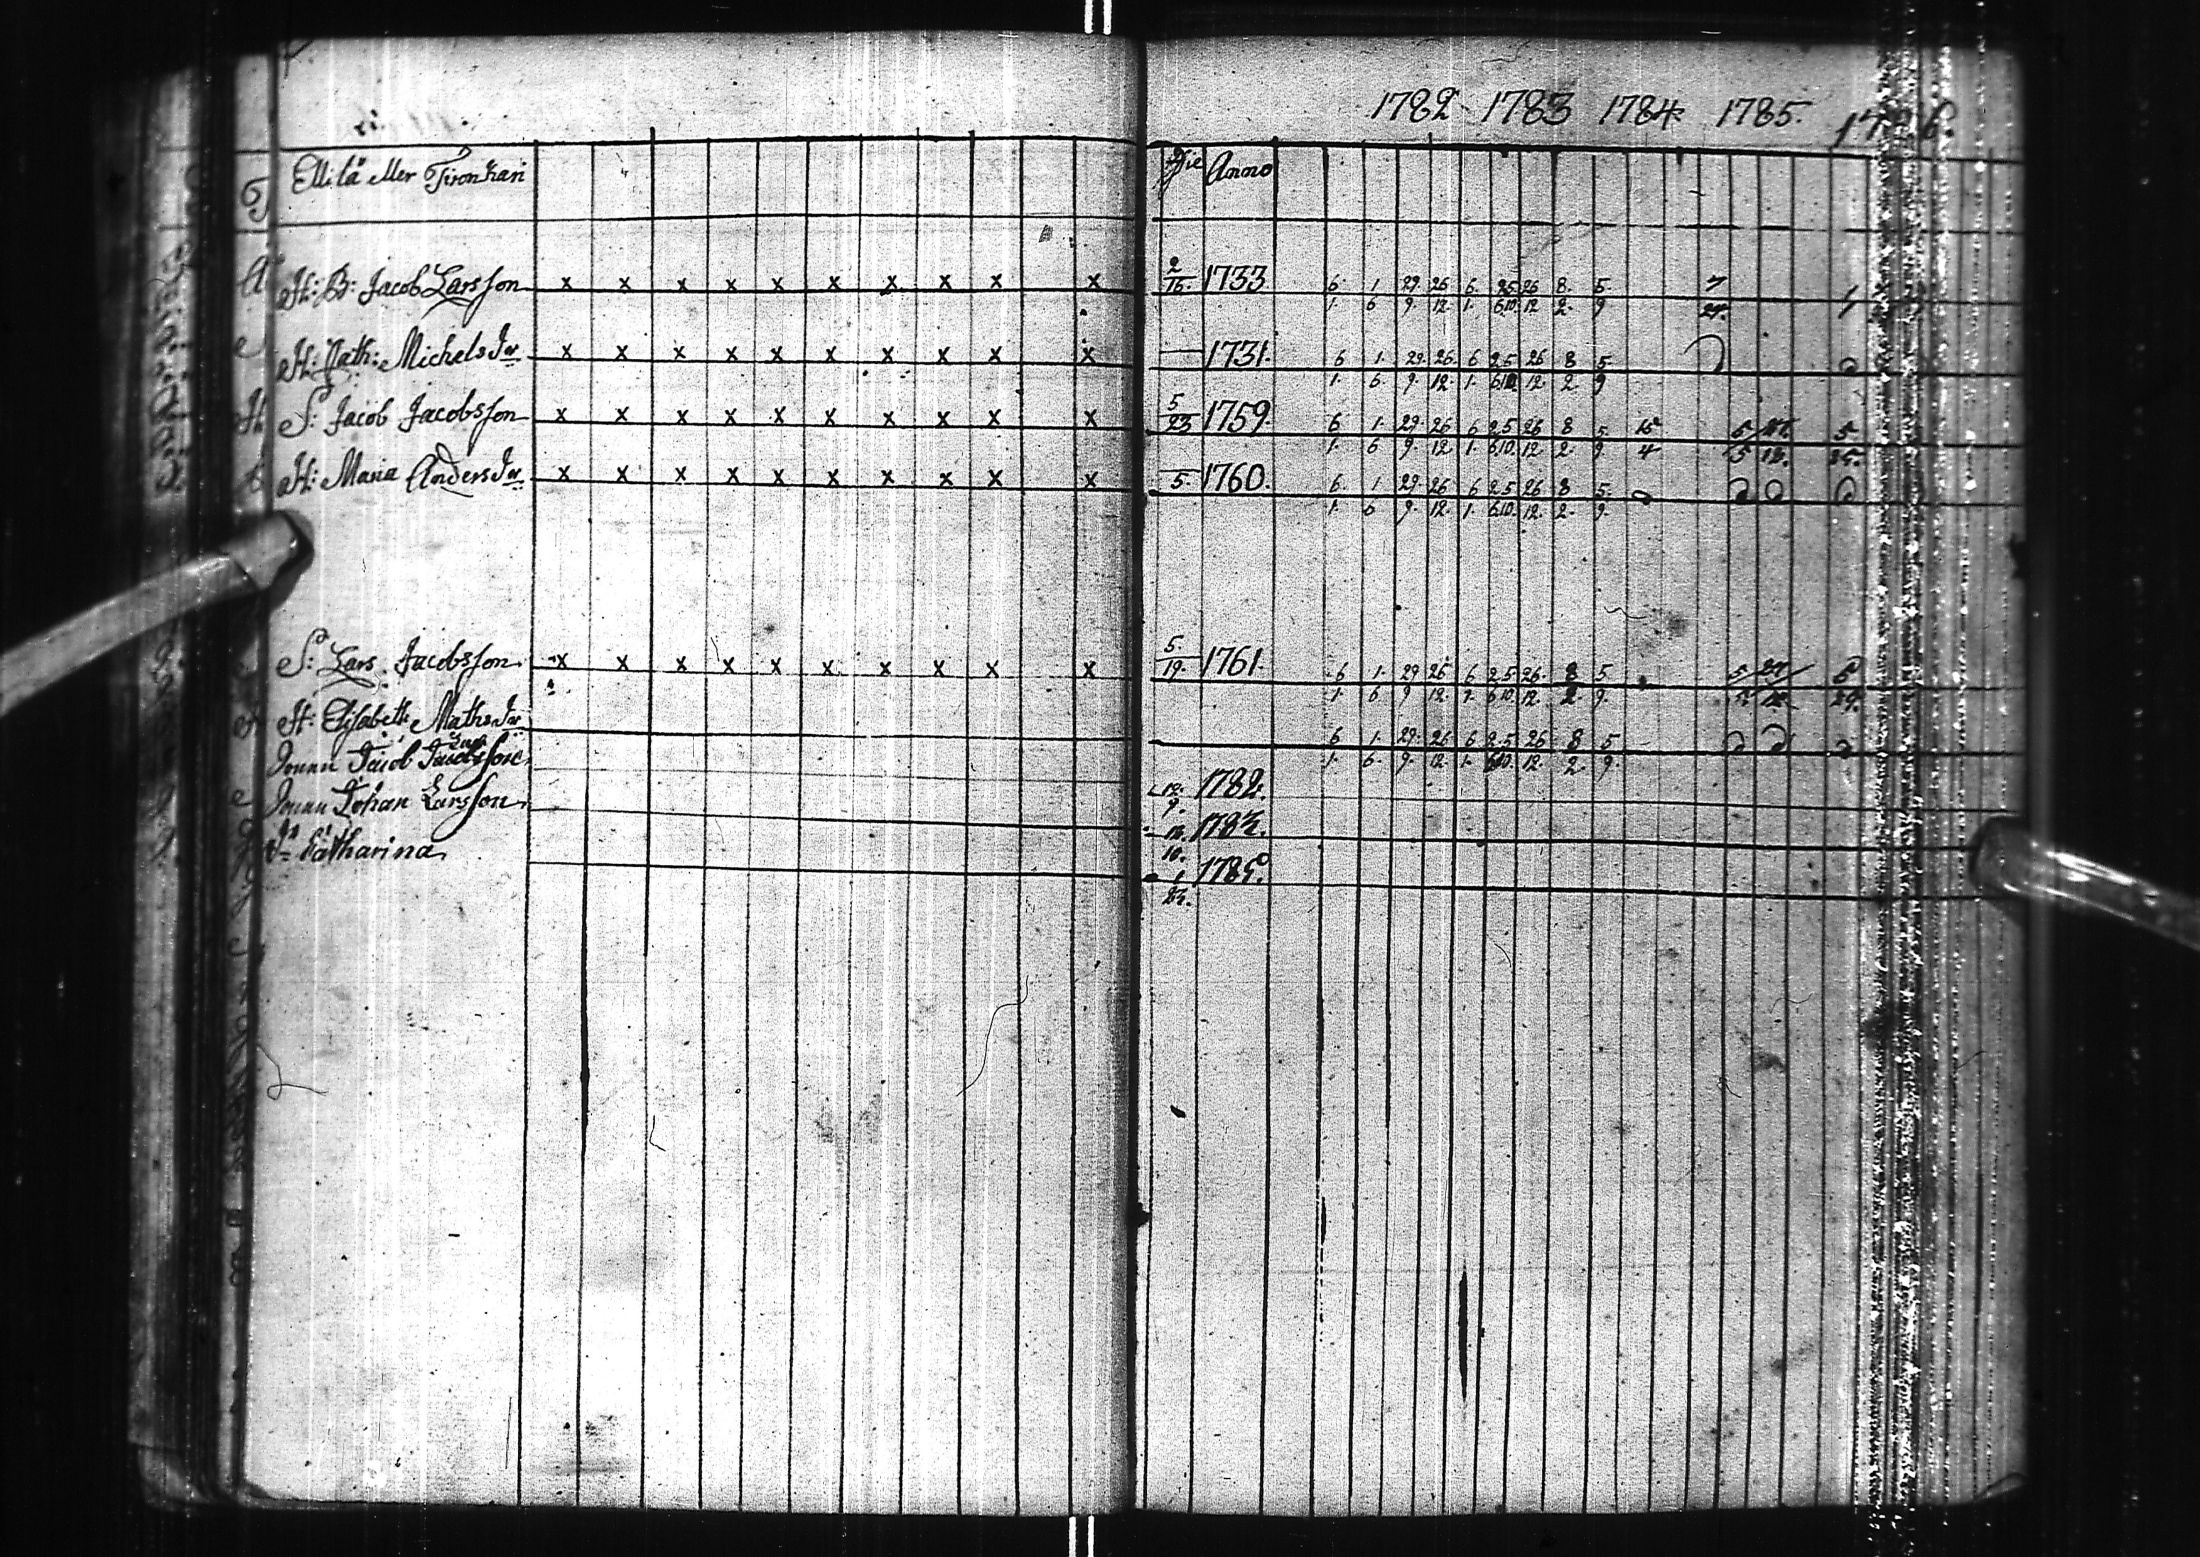 1782 1783 1784 1785.
Ellilä eller Tironkari Die Anno
H: B: Jacob Larsson x x x x x x x x x x 2/16. 1733 6 1 29 26 6 25 26 8. 5. 7
1. 6 9. 12. 1. 6 10. 12 2. 9 24.
H: Cath: Michels Dr x x x x x x x x x x 1731. 6 1. 29. 26. 6 25 26 8 5.
1. 6. 9. 12. 1. 6 10. 12. 2. 9
S: Jacob Jacobsson x x x x x x x x x x 5/23 1759. 6 1. 29 26 6 25 26 8 5.
1. 6 9. 12 1. 6 10. 12 2. 9. 4 5 12. 25.
H: Maria Anders Dr x x x x x x x x x x 5. 1760. 6. 1 29 26 6 25 26 8 5.
1. 6 9. 12. 1. 6 10. 12. 2. 9.
S: Lars Jacobsson x x x x x x x x x x 5./19. 1761. 6 1. 29 26 6 25. 26. 8 5
1. 6 9 12. 1. 6 10. 12. 2. 9.
H: Elisabeth Maths Dr 6 1. 29. 26 6 25 26 8 5
1. 6. 9. 12. 1. 6 10. 12. 2. 9.
Lars
Jacob 12./9. 1782.
Johan Larsson
Catharina 1785.